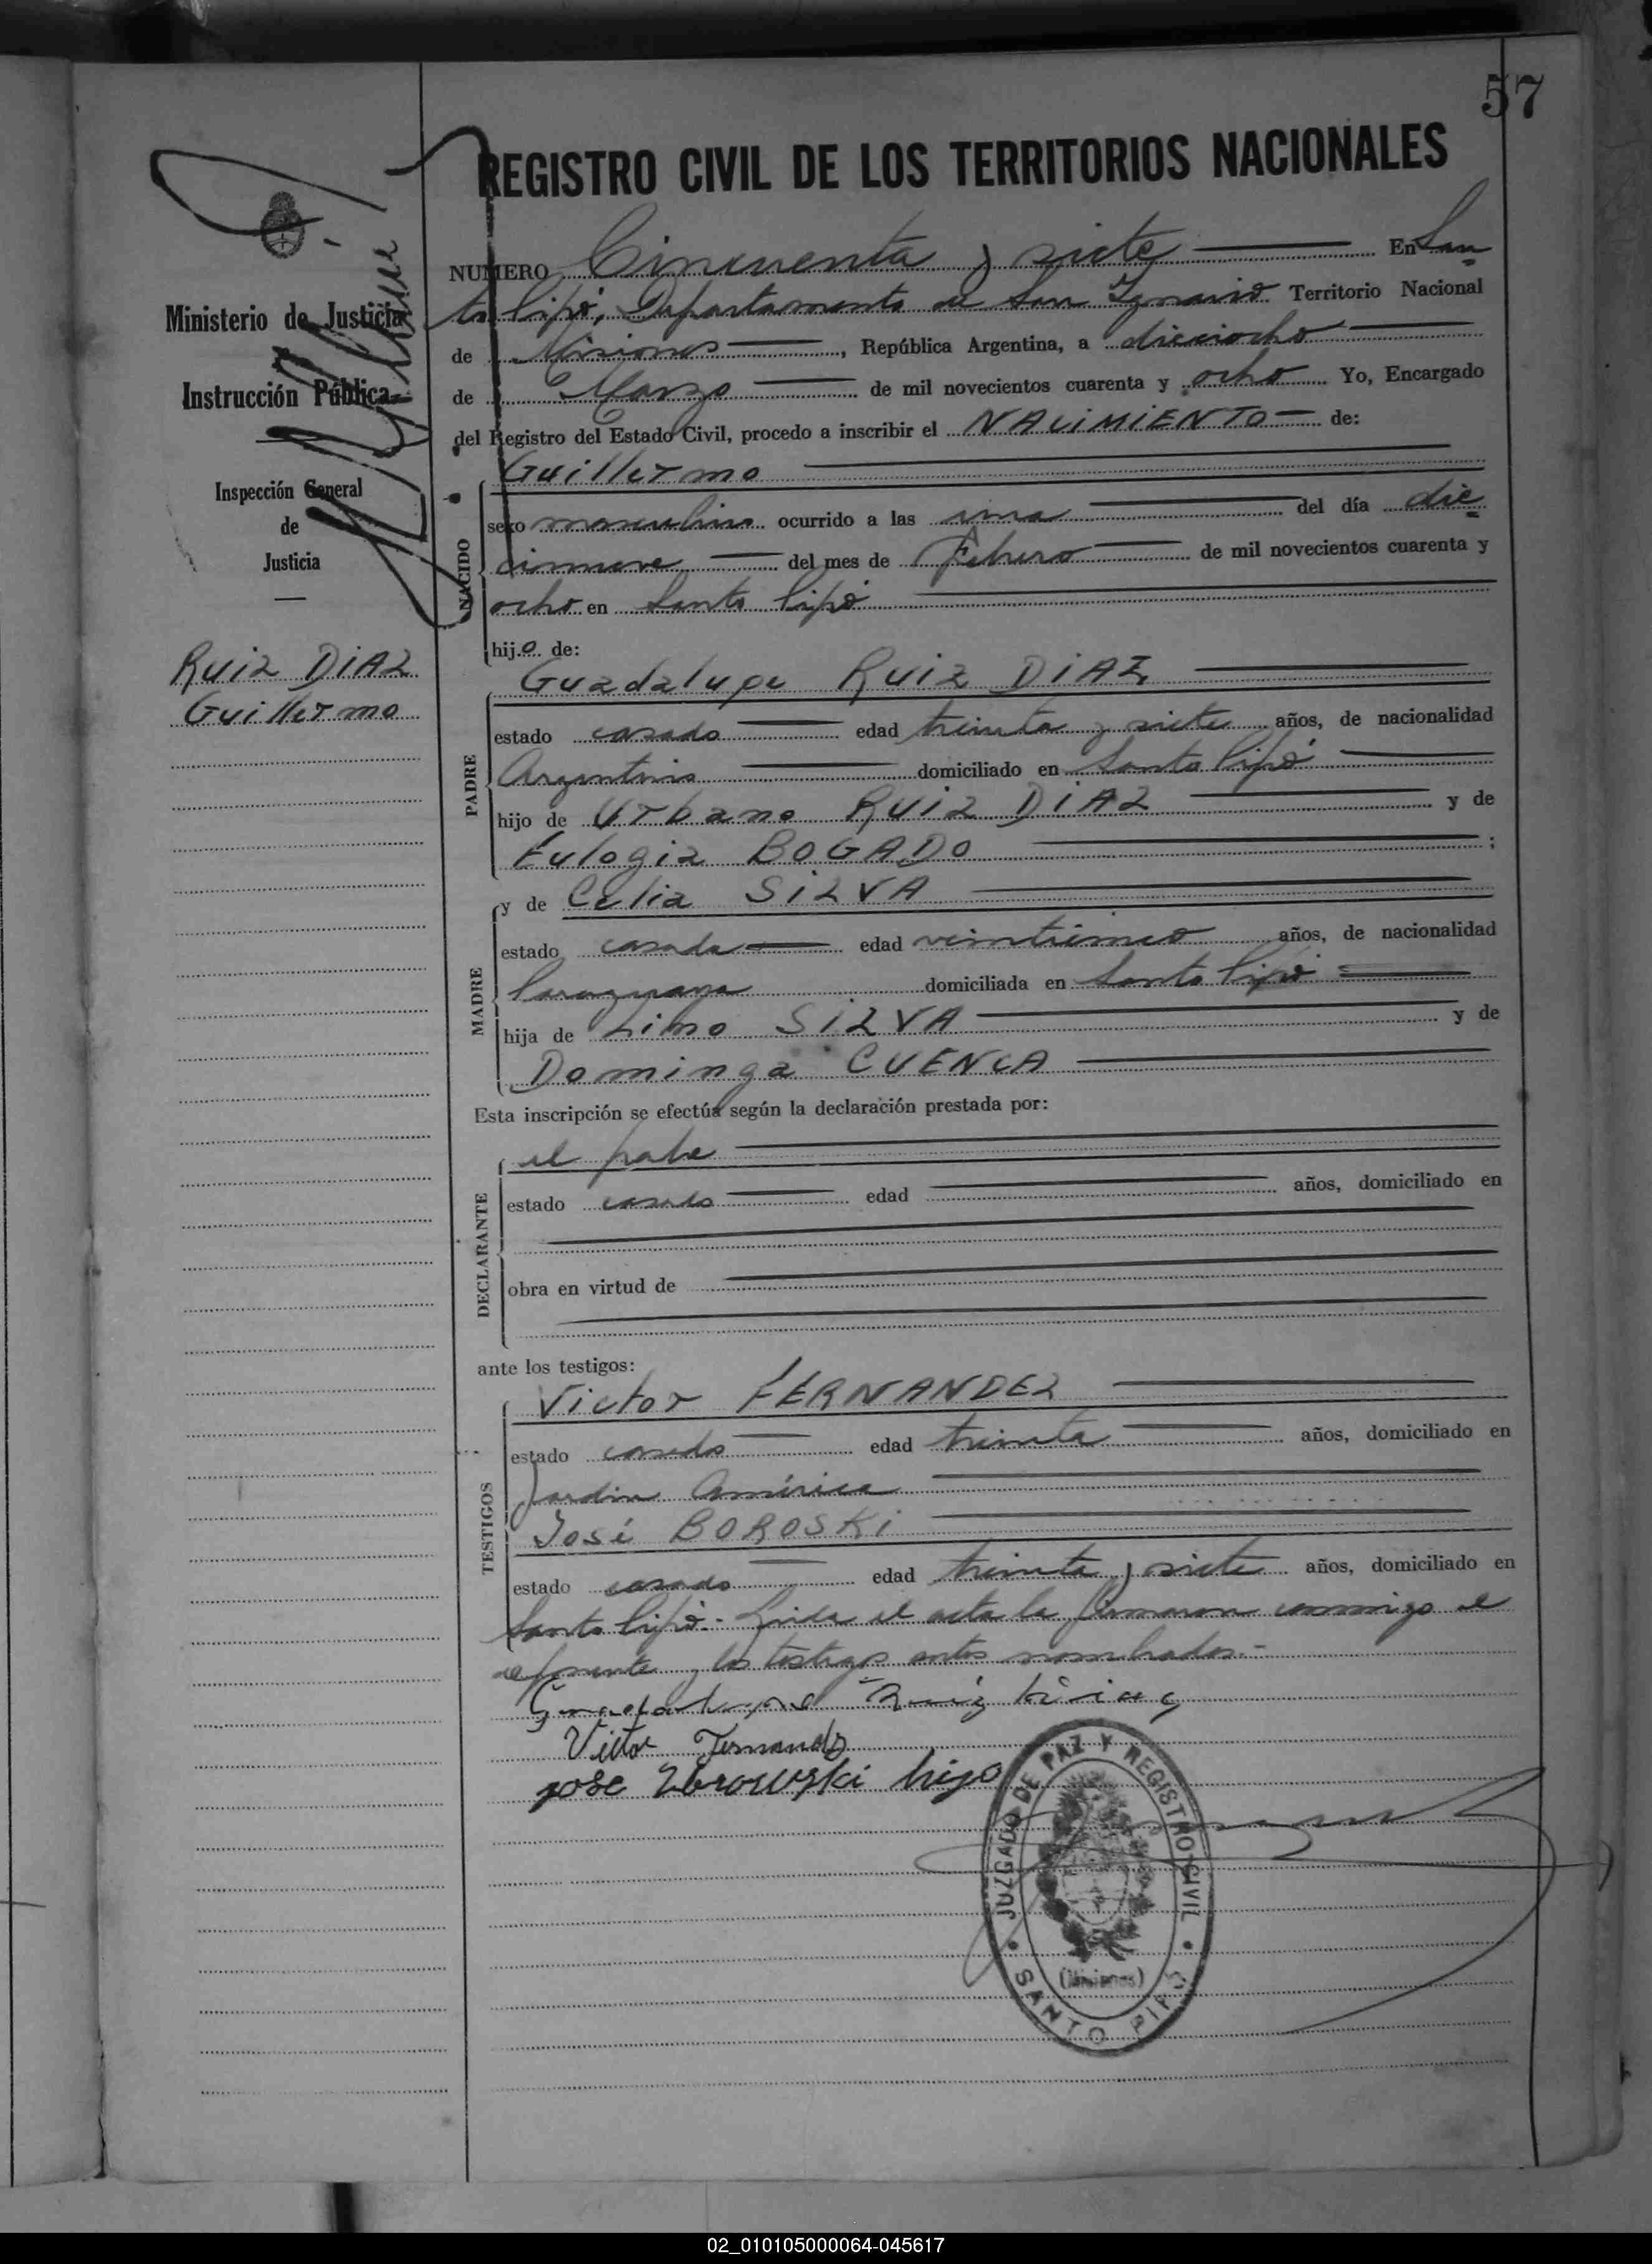 57
REGISTRO CIVIL DE LOS TERRITORIOS NACIONALES
NUMERO Cincuenta y siete En San
to Pipó, Departamento de San Ignacio Territorio Nacional
de Misiones, República Argentina, a dieciocho
de Marzo de mil novecientos cuarenta y ocho Yo, Encargado
del Registro del Estado Civil, procedo a inscribir el NACIMIENTO de:
Guillermo
sexo masculino ocurrido a las una del día die
cinueve del mes de Febrero de mil novecientos cuarenta y
ocho en Santo Pipó
hijo de:
NACIDO
Guadalupe Ruiz DIAZ
estado casado edad treinta y siete años, de nacionalidad
Argentino domiciliado en Santo Pipó
hijo de Urbano Ruiz DIAZ y de
Eulogia BOGADO ;
PADRE
y de Celia SILVA
estado casada edad veinticinco años, de nacionalidad
Paraguaya domiciliada en Santo Pipó
hija de Lino SILVA y de
Dominga CUENCA
MADRE
Esta inscripción se efectúa según la declaración prestada por:
el padre
estado casado edad años, domiciliado en
obra en virtud de
DECLARANTE
ante los testigos:
Victor FERNANDEZ
estado casado edad treinta años, domiciliado en
Jardin América
José BOROSKI
estado casado edad treinta y siete años, domiciliado en
Santo Pipó.- Leida el acta la firmaron conmigo el
exponente y los testigos antes nombrados.-
TESTIGOS
Guadalupe Ruiz Diaz
Victor Fernandez
jose hijo
JUZGADO DE PAZ Y REGISTRO CIVIL
(Misiones)
SANTO PIPÓ
Ministerio de Justicia
Instrucción Pública
Inspección General
de
Justicia
Ruiz DIAZ
Guillermo
02_010105000064-045617